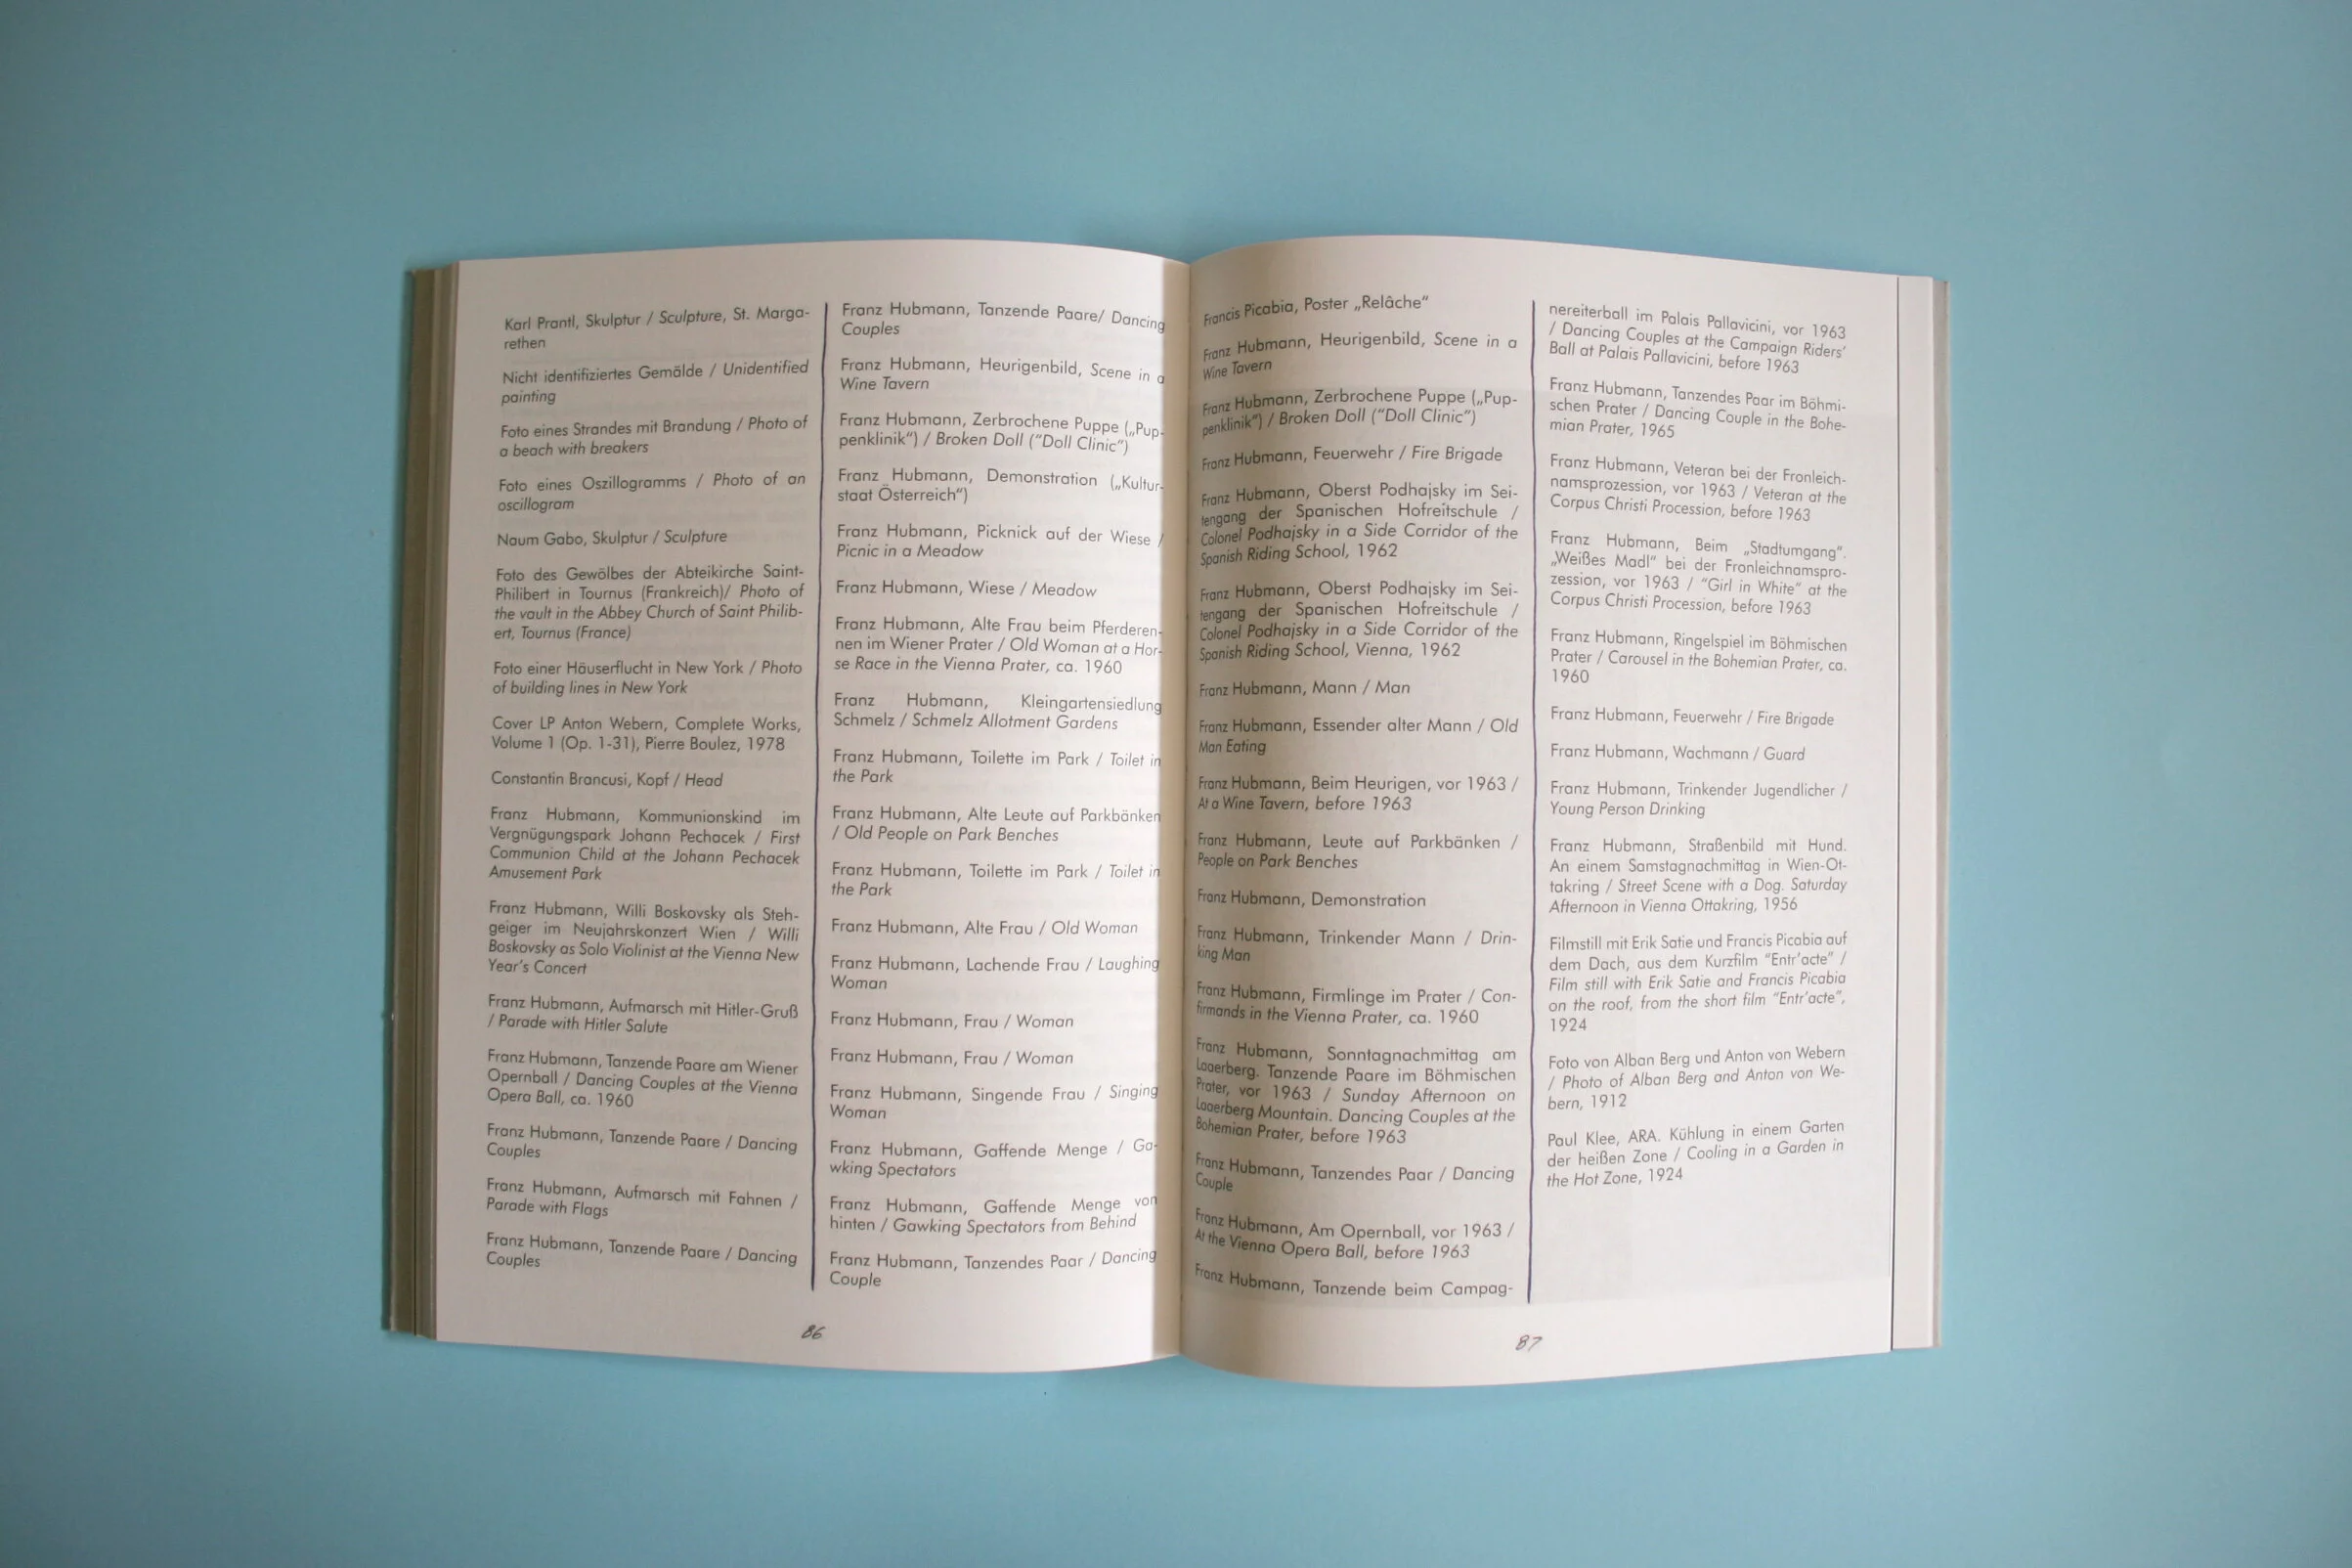 Karl Prantl, Skulptur / Sculpture, St. Marga-
rethen
Nicht identifiziertes Gemälde / Unidentified
painting
Foto eines Strandes mit Brandung / Photo of
a beach with breakers
Foto eines Oszillogramms / Photo of an
oscillogram
Naum Gabo, Skulptur / Sculpture
Foto des Gewölbes der Abteikirche Saint-
Philibert in Tournus (Frankreich)/ Photo of
the vault in the Abbey Church of Saint Philib-
ert, Tournus (France)
Foto einer Häuserflucht in New York / Photo
of building lines in New York
Cover LP Anton Webern, Complete Works,
Volume 1 (Op. 1-31), Pierre Boulez, 1978
Constantin Brancusi, Kopf / Head
Franz Hubmann, Kommunionskind im
Vergnügungspark Johann Pechacek / First
Communion Child at the Johann Pechacek
Amusement Park
Franz Hubmann, Willi Boskovsky als Steh-
geiger im Neujahrskonzert Wien / Willi
Boskovsky as Solo Violinist at the Vienna New
Year's Concert
Franz Hubmann, Aufmarsch mit Hitler-Gruß
/ Parade with Hitler Salute
Franz Hubmann, Tanzende Paare am Wiener
Opernball / Dancing Couples at the Vienna
Opera Ball, ca. 1960
Franz Hubmann, Tanzende Paare / Dancing
Couples
Franz Hubmann, Aufmarsch mit Fahnen /
Parade with Flags
Franz Hubmann, Tanzende Paare / Dancing
Couples
Franz Hubmann, Tanzende Paare/ Dancing
Couples
Franz Hubmann, Heurigenbild, Scene in a
Wine Tavern
Franz Hubmann, Zerbrochene Puppe („Pup-
penklinik“) / Broken Doll (“Doll Clinic”)
Franz Hubmann, Demonstration („Kultur-
staat Österreich“)
Franz Hubmann, Picknick auf der Wiese /
Picnic in a Meadow
Franz Hubmann, Wiese / Meadow
Franz Hubmann, Alte Frau beim Pferderen-
nen im Wiener Prater / Old Woman at a Hor-
se Race in the Vienna Prater, ca. 1960
Franz Hubmann, Kleingartensiedlung
Schmelz / Schmelz Allotment Gardens
Franz Hubmann, Toilette im Park / Toilet in
the Park
Franz Hubmann, Alte Leute auf Parkbänken
/ Old People on Park Benches
Franz Hubmann, Toilette im Park / Toilet in
the Park
Franz Hubmann, Alte Frau / Old Woman
Franz Hubmann, Lachende Frau / Laughing
Woman
Franz Hubmann, Frau / Woman
Franz Hubmann, Frau / Woman
Franz Hubmann, Singende Frau / Singing
Woman
Franz Hubmann, Gaffende Menge / Ga-
wking Spectators
Franz Hubmann, Gaffende Menge von
hinten / Gawking Spectators from Behind
Franz Hubmann, Tanzendes Paar / Dancing
Couple
86
Francis Picabia, Poster „Relâche“
Franz Hubmann, Heurigenbild, Scene in a
Wine Tavern
Franz Hubmann, Zerbrochene Puppe („Pup-
penklinik“) / Broken Doll (“Doll Clinic”)
Franz Hubmann, Feuerwehr / Fire Brigade
Franz Hubmann, Oberst Podhajsky im Sei-
tengang der Spanischen Hofreitschule /
Colonel Podhajsky in a Side Corridor of the
Spanish Riding School, 1962
Franz Hubmann, Oberst Podhajsky im Sei-
tengang der Spanischen Hofreitschule /
Colonel Podhajsky in a Side Corridor of the
Spanish Riding School, Vienna, 1962
Franz Hubmann, Mann / Man
Franz Hubmann, Essender alter Mann / Old
Man Eating
Franz Hubmann, Beim Heurigen, vor 1963 /
At a Wine Tavern, before 1963
Franz Hubmann, Leute auf Parkbänken /
People on Park Benches
Franz Hubmann, Demonstration
Franz Hubmann, Trinkender Mann / Drin-
king Man
Franz Hubmann, Firmlinge im Prater / Con-
firmands in the Vienna Prater, ca. 1960
Franz Hubmann, Sonntagnachmittag am
Laaerberg. Tanzende Paare im Böhmischen
Prater, vor 1963 / Sunday Afternoon on
Laaerberg Mountain. Dancing Couples at the
Bohemian Prater, before 1963
Franz Hubmann, Tanzendes Paar / Dancing
Couple
Franz Hubmann, Am Opernball, vor 1963 /
At the Vienna Opera Ball, before 1963
Franz Hubmann, Tanzende beim Campag-
nereiterball im Palais Pallavicini, vor 1963
/ Dancing Couples at the Campaign Riders'
Ball at Palais Pallavicini, before 1963
Franz Hubmann, Tanzendes Paar im Böhmi-
schen Prater / Dancing Couple in the Bohe-
mian Prater, 1965
Franz Hubmann, Veteran bei der Fronleich-
namsprozession, vor 1963 / Veteran at the
Corpus Christi Procession, before 1963
Franz Hubmann, Beim „Stadtumgang“.
„Weißes Madl“ bei der Fronleichnamspro-
zession, vor 1963 / “Girl in White” at the
Corpus Christi Procession, before 1963
Franz Hubmann, Ringelspiel im Böhmischen
Prater / Carousel in the Bohemian Prater, ca.
1960
Franz Hubmann, Feuerwehr / Fire Brigade
Franz Hubmann, Wachmann / Guard
Franz Hubmann, Trinkender Jugendlicher /
Young Person Drinking
Franz Hubmann, Straßenbild mit Hund.
An einem Samstagnachmittag in Wien-Ot-
takring / Street Scene with a Dog. Saturday
Afternoon in Vienna Ottakring, 1956
Filmstill mit Erik Satie und Francis Picabia auf
dem Dach, aus dem Kurzfilm “Entr'acte” /
Film still with Erik Satie and Francis Picabia
on the roof, from the short film “Entr'acte”,
1924
Foto von Alban Berg und Anton von Webern
/ Photo of Alban Berg and Anton von We-
bern, 1912
Paul Klee, ARA. Kühlung in einem Garten
der heißen Zone / Cooling in a Garden in
the Hot Zone, 1924
87